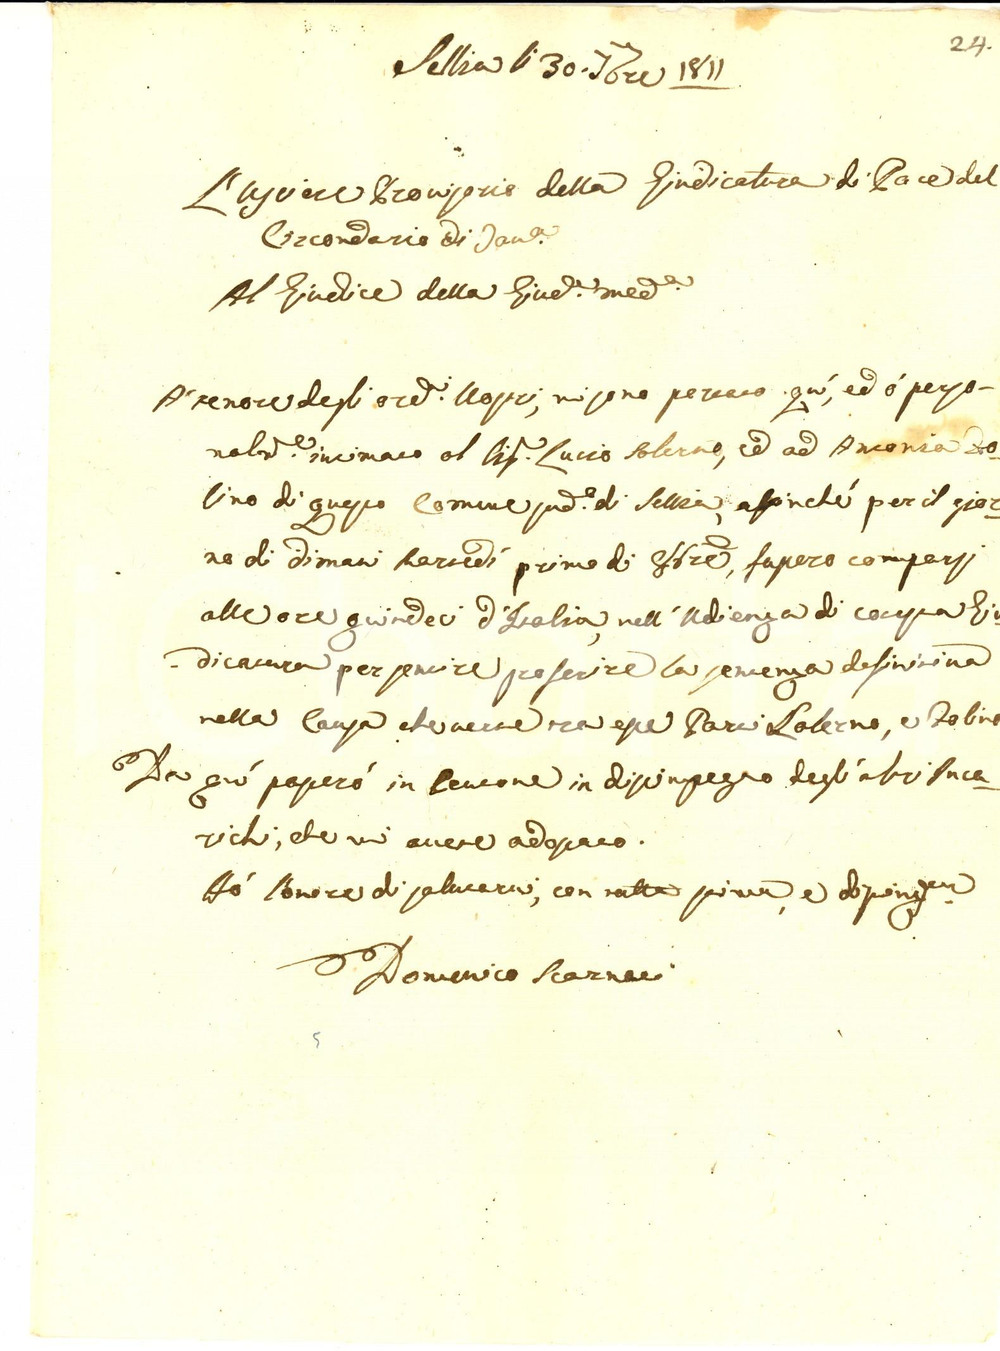 24.
Sellia li 30. 7bre 1811
L'Usciere Provisorio della Giudicatura di Pace del
Circondario di
Al Giudice della Giud.a med.a
A' tenore degl'ord.i Vostri, mi sono portato quì, ed ò perso-
nalm.e intimato al Sig.r Lucio Salerno, ed ad Antonia Zo-
lino di questo Comune sud.o di Sellia, affinchè per il gior-
no di dimani Martedì primo di 8bre, fussero comparsi
alle ore quindeci d'Italia, nell'Udienza di cotesta Giu-
dicatura per sentire proferire la sentenza definitiva
nella Causa che verte tra esse Parti Salerno, e Zolino
Da quì passerò in in disimpegno degl'altri Inca-
richi, che mi avete adossato.
Hò l'onore di salutarvi, con stima, e
Domenico Scarnati